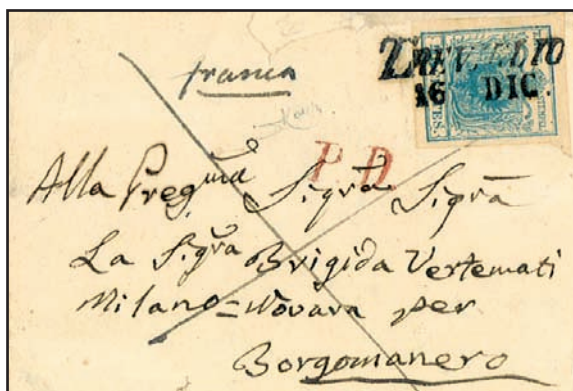 franca
TREVIGLIO
16 DIC.
P.D.
Alla Pregma Sigra Sigra
La Sigra Brigida Vertemati
Milano=Novara per
Borgomanero